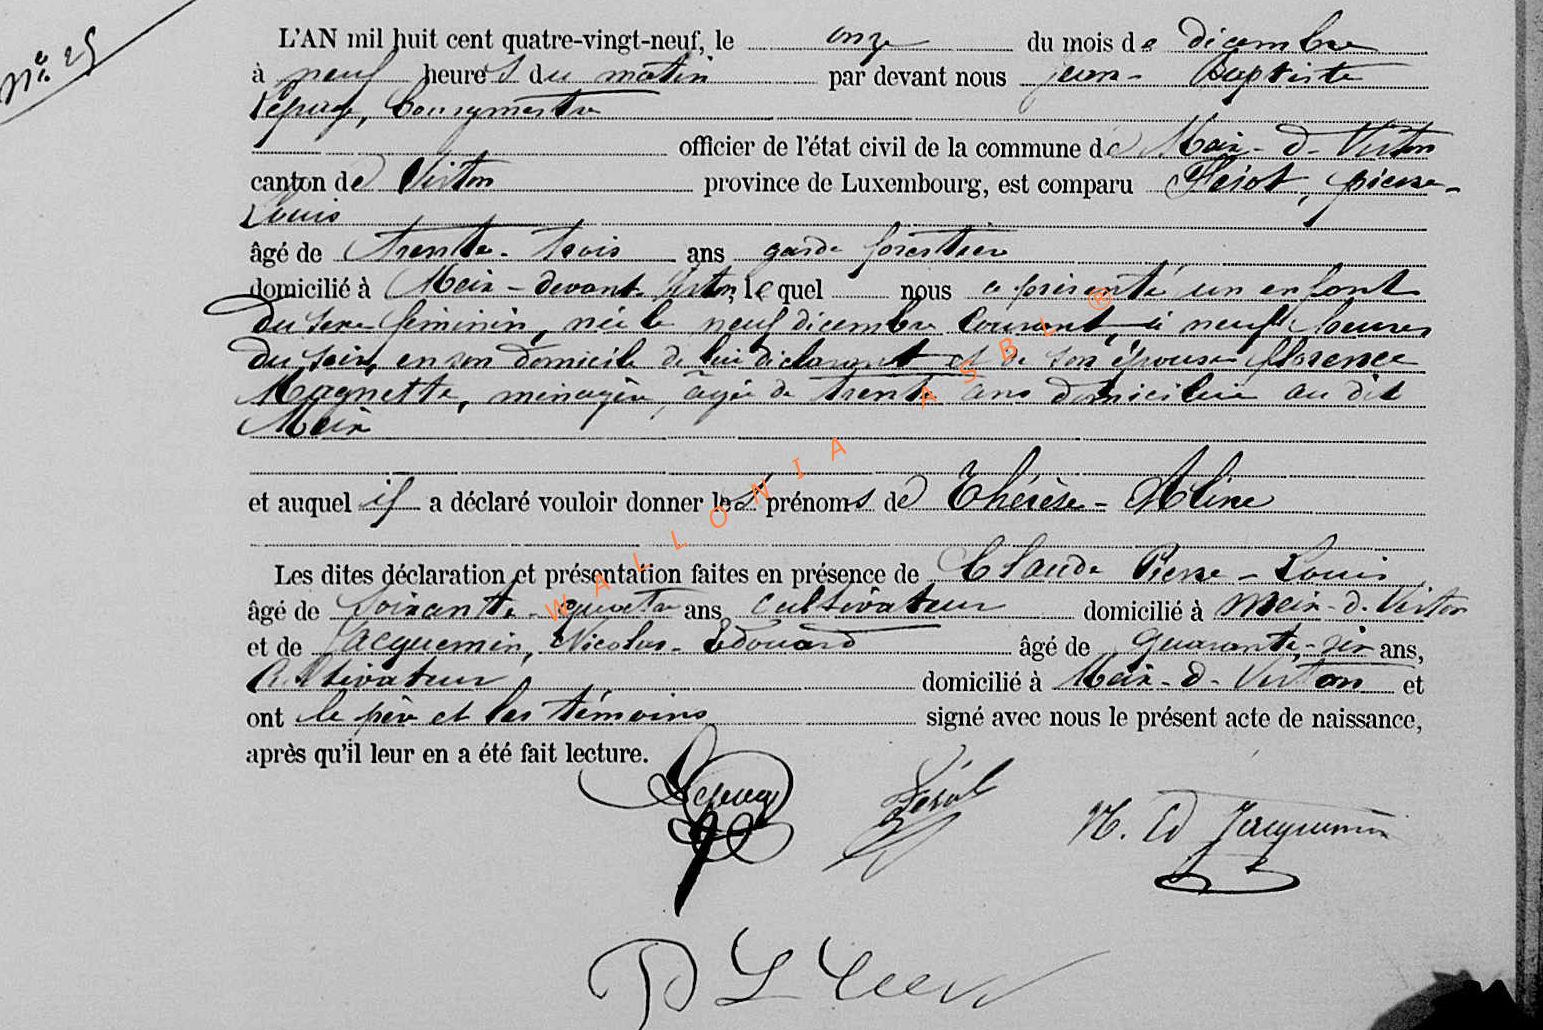 Nº 25
L'AN mil huit cent quatre-vingt-neuf, le onze du mois de décembre
à neuf heures du matin par devant nous jean-Baptiste
Lépage, bourgmestre
officier de l'état civil de la commune de Meix-d-Virton
canton de Virton province de Luxembourg, est comparu Féiot, pierre-
Louis
âgé de trente-trois ans garde forestier
domicilié à Meix-devant-Virton, lequel nous a présenté un enfant
du sexe féminin, née le neuf décembre courant, à neuf heures
du soir, en son domicile de lui déclarant et de son épouse florence
Magnette, ménagère, âgée de trente ans domiciliée au dit
Meix
et auquel il a déclaré vouloir donner les prénoms de Thérèse-Aline
Les dites déclaration et présentation faites en présence de Claude Pierre-Louis
âgé de soixante-quatre ans cultivateur domicilié à Meix-d-Virton
et de Jacquemin, Nicolas-Edouard âgé de quarante-six ans,
Cultivateur domicilié à Meix-d-Virton et
ont le père et les témoins signé avec nous le présent acte de naissance,
après qu'il leur en a été fait lecture.
N. Ed Jacquemin
WALLONIA ASBL ®